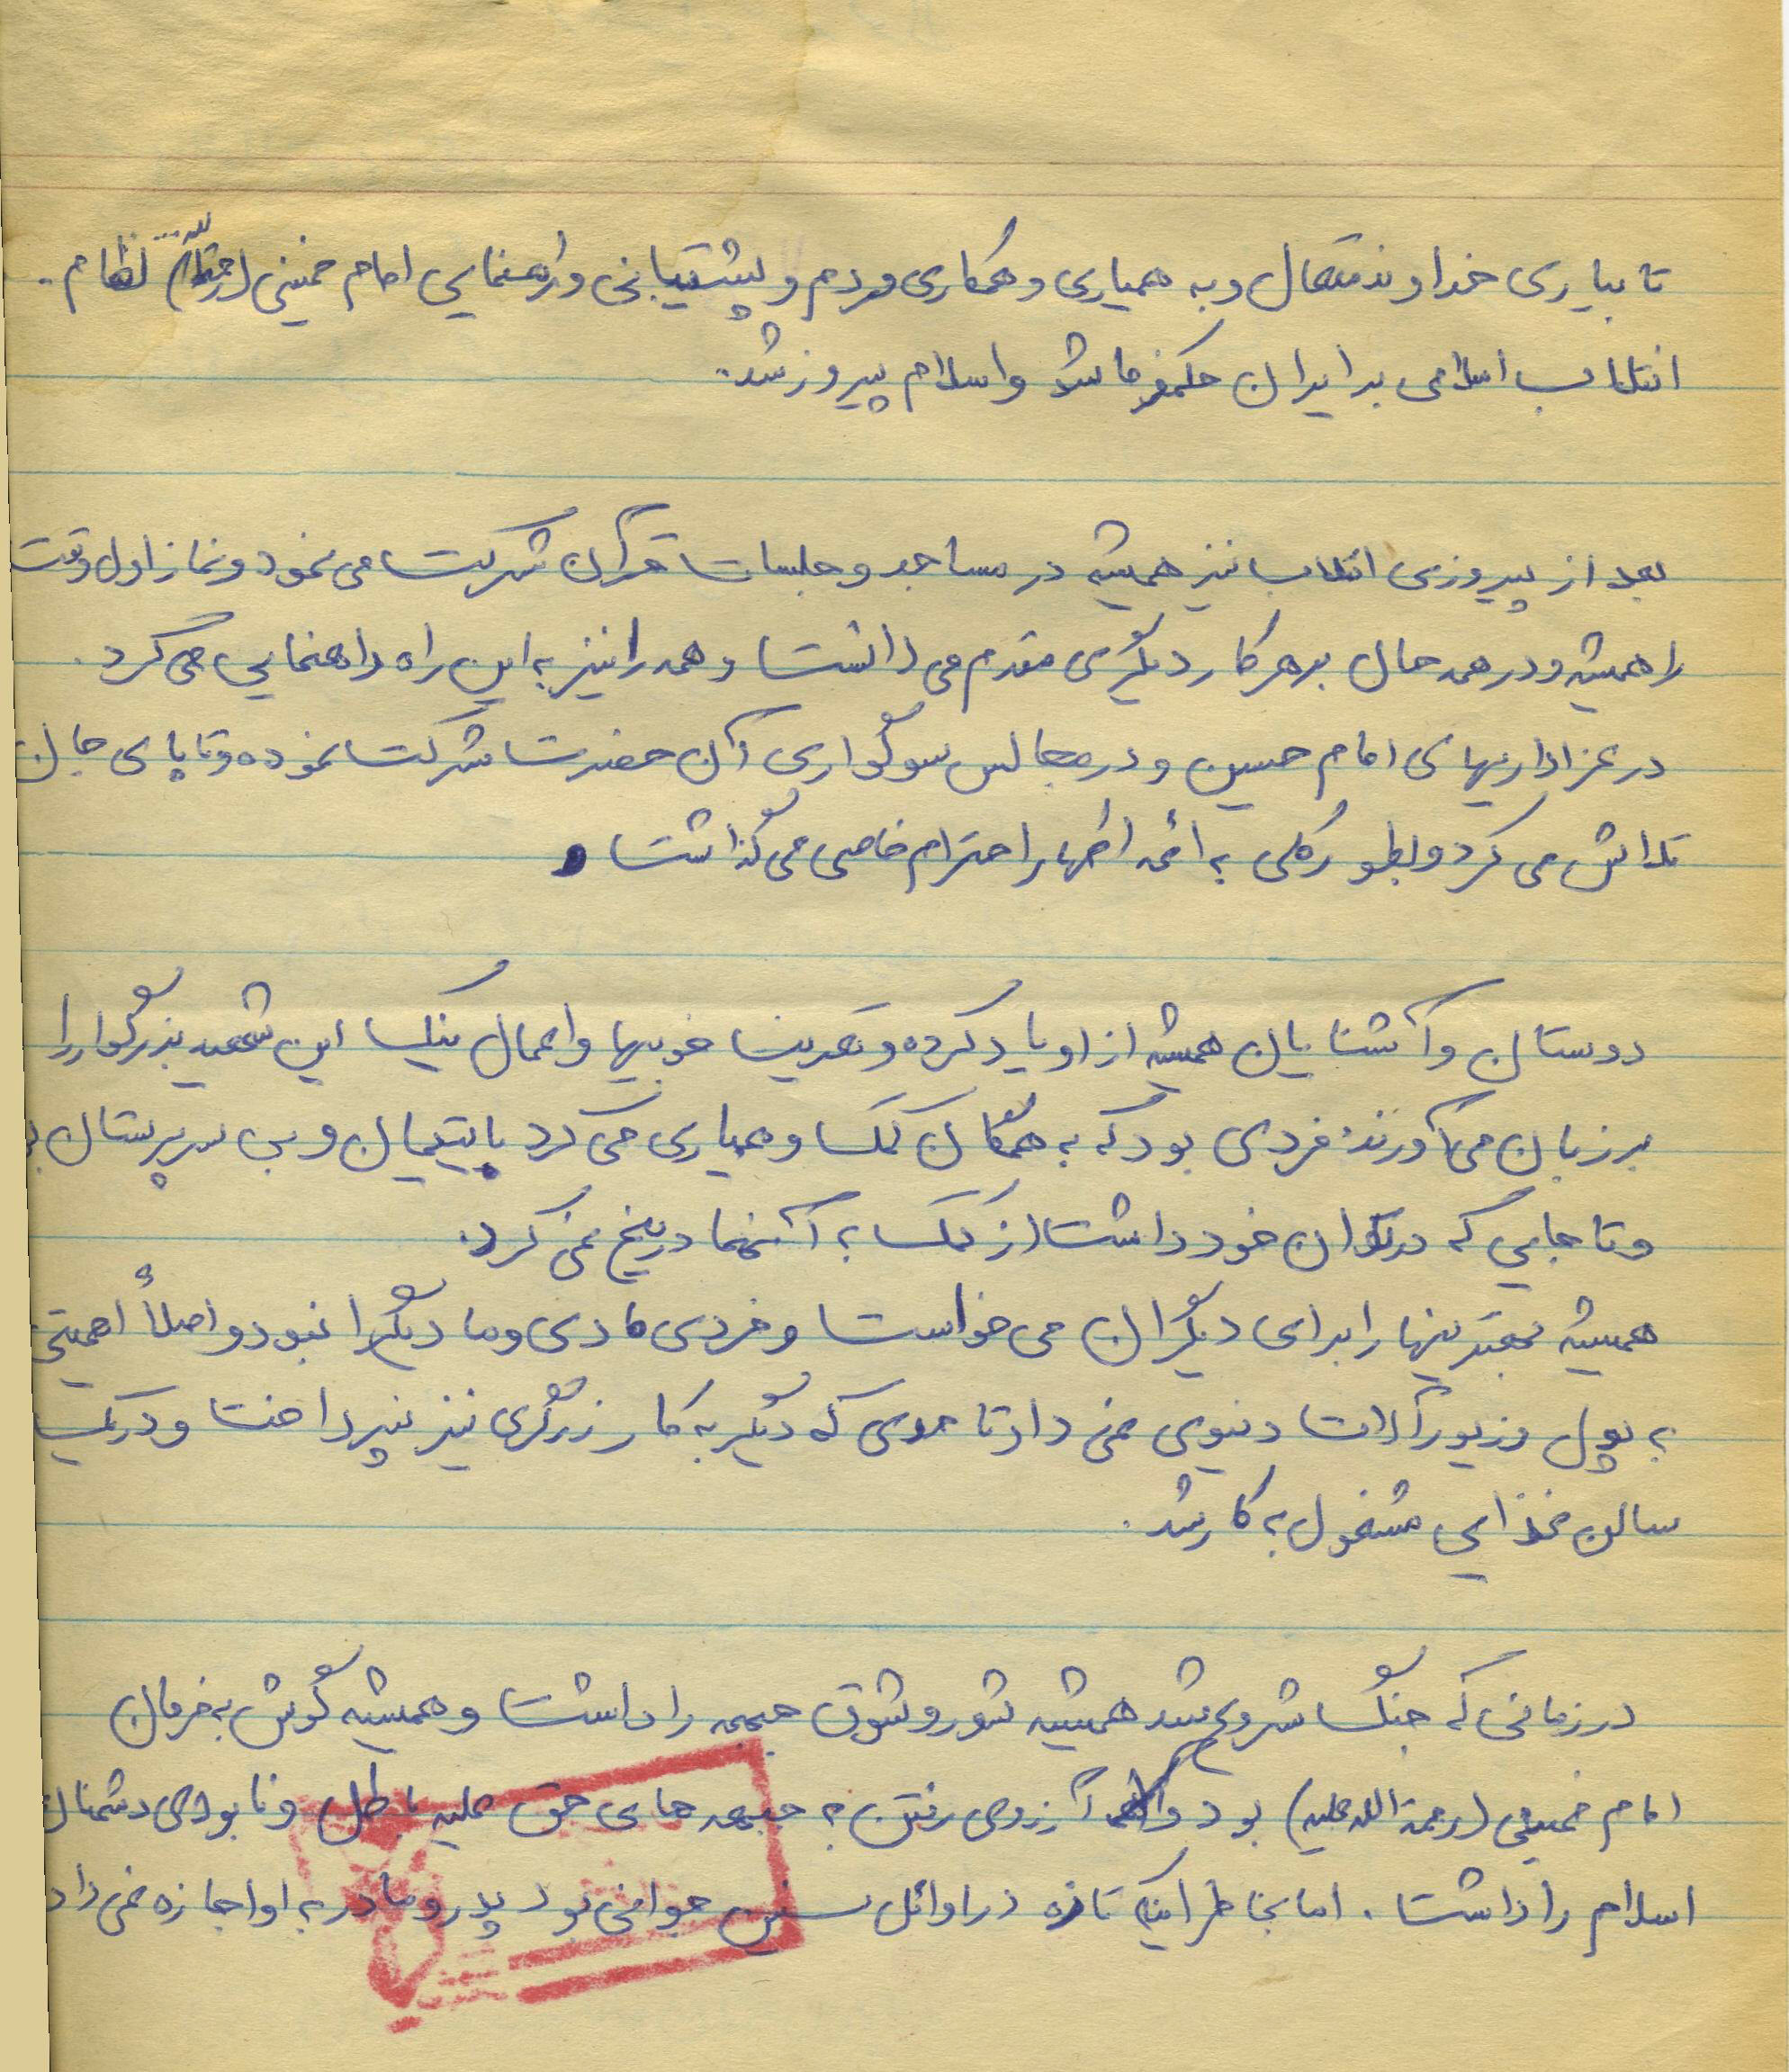 تا بیاری خداوند متعال و به همیاری و همکاری مردم و پشتیبانی و راهنمایی امام خمینی (رحمة الله) نظام
انقلاب اسلامی بر ایران حکمفرما شد و اسلام پیروز شد.
بعد از پیروزی انقلاب نیز همیشه در مساجد و جلسات قرآن شرکت می نمود و نماز اول وقت
را همیشه و در همه حال بر هر کار دیگری مقدم می دانست و همه را نیز به این راه راهنمایی می کرد.
در عزاداریهای امام حسین و در مجالس سوگواری آن حضرت شرکت نموده و تا پای جان
تلاش می کرد و بطور کلی به ائمه اطهار احترام خاصی می گذاشت.
دوستان و آشنایان همیشه از او یاد کرده و تعریف خوبیها و اعمال نیک این شهید بزرگوار را
بر زبان می آورند. فردی بود که به همگان کمک و همیاری می کرد با یتیمان و بی سرپرستان
و تا جایی که در توان خود داشت از کمک به آنها دریغ نمی کرد.
همیشه بهترینها را برای دیگران می خواست و فردی مادی و ما دیگرا نبود و اصلاً اهمیتی
به پول و زیورآلات دنیوی نمی داد تا حدی که دیگر به کار زرگری نیز نپرداخت و در یک
سالن غذایی مشغول به کار شد.
در زمانی که جنگ شروع شد همیشه شور و شوق جبهه را داشت و همیشه گوش به فرمان
امام خمینی (رحمة الله علیه) بود و آرزوی رفتن به جبهه های حق علیه باطل و نابودی دشمنان
اسلام را داشت. اما بخاطر اینکه تازه در اوائل سنین جوانی بود پدر و مادر به او اجازه نمی داد